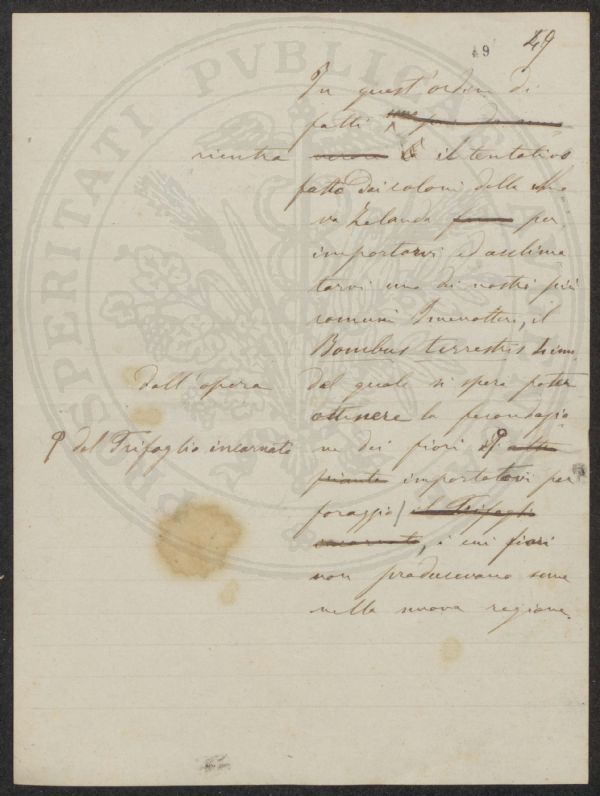 49
49
In quest'ordine di
fatti
rientra il tentativo
fatto dai coloni della Nuo
va Zelanda per
importarvi ed acclima
tarvi uno dei nostri più
comuni Imenotteri, il
Bombus terrestris Linn.
dall'opera del quale si spera poter
ottenere la fecondazio
del Trifoglio incarnato ne dei fiori
pianta importatovi per
foraggio il Trifoglio
incarnato, i cui fiori
non producevano seme
nella nuova regione.
PROSPERITATI PVBLICAE